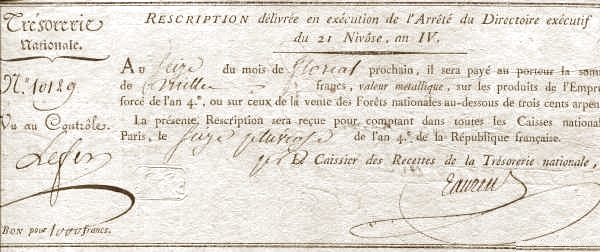 Trésorerie
Nationale.
N.º 10129
Vu au Contrôle.
BON pour 1000 francs.
RESCRIPTION délivrée en exécution de l'Arrêté du Directoire exécutif
du 21 Nivôse, an IV.
AU seize du mois de floréal prochain, il sera payé au porteur la som
de mille francs, valeur métallique, sur les produits de l'Empr
forcé de l'an 4.e, ou sur ceux de la vente des Forêts nationales au-dessous de trois cents arpen
La présente Rescription sera reçue pour comptant dans toutes les Caisses national
Paris, le seize pluviose de l'an 4.e de la République française.
Le Caissier des Recettes de la Trésorerie nationale,